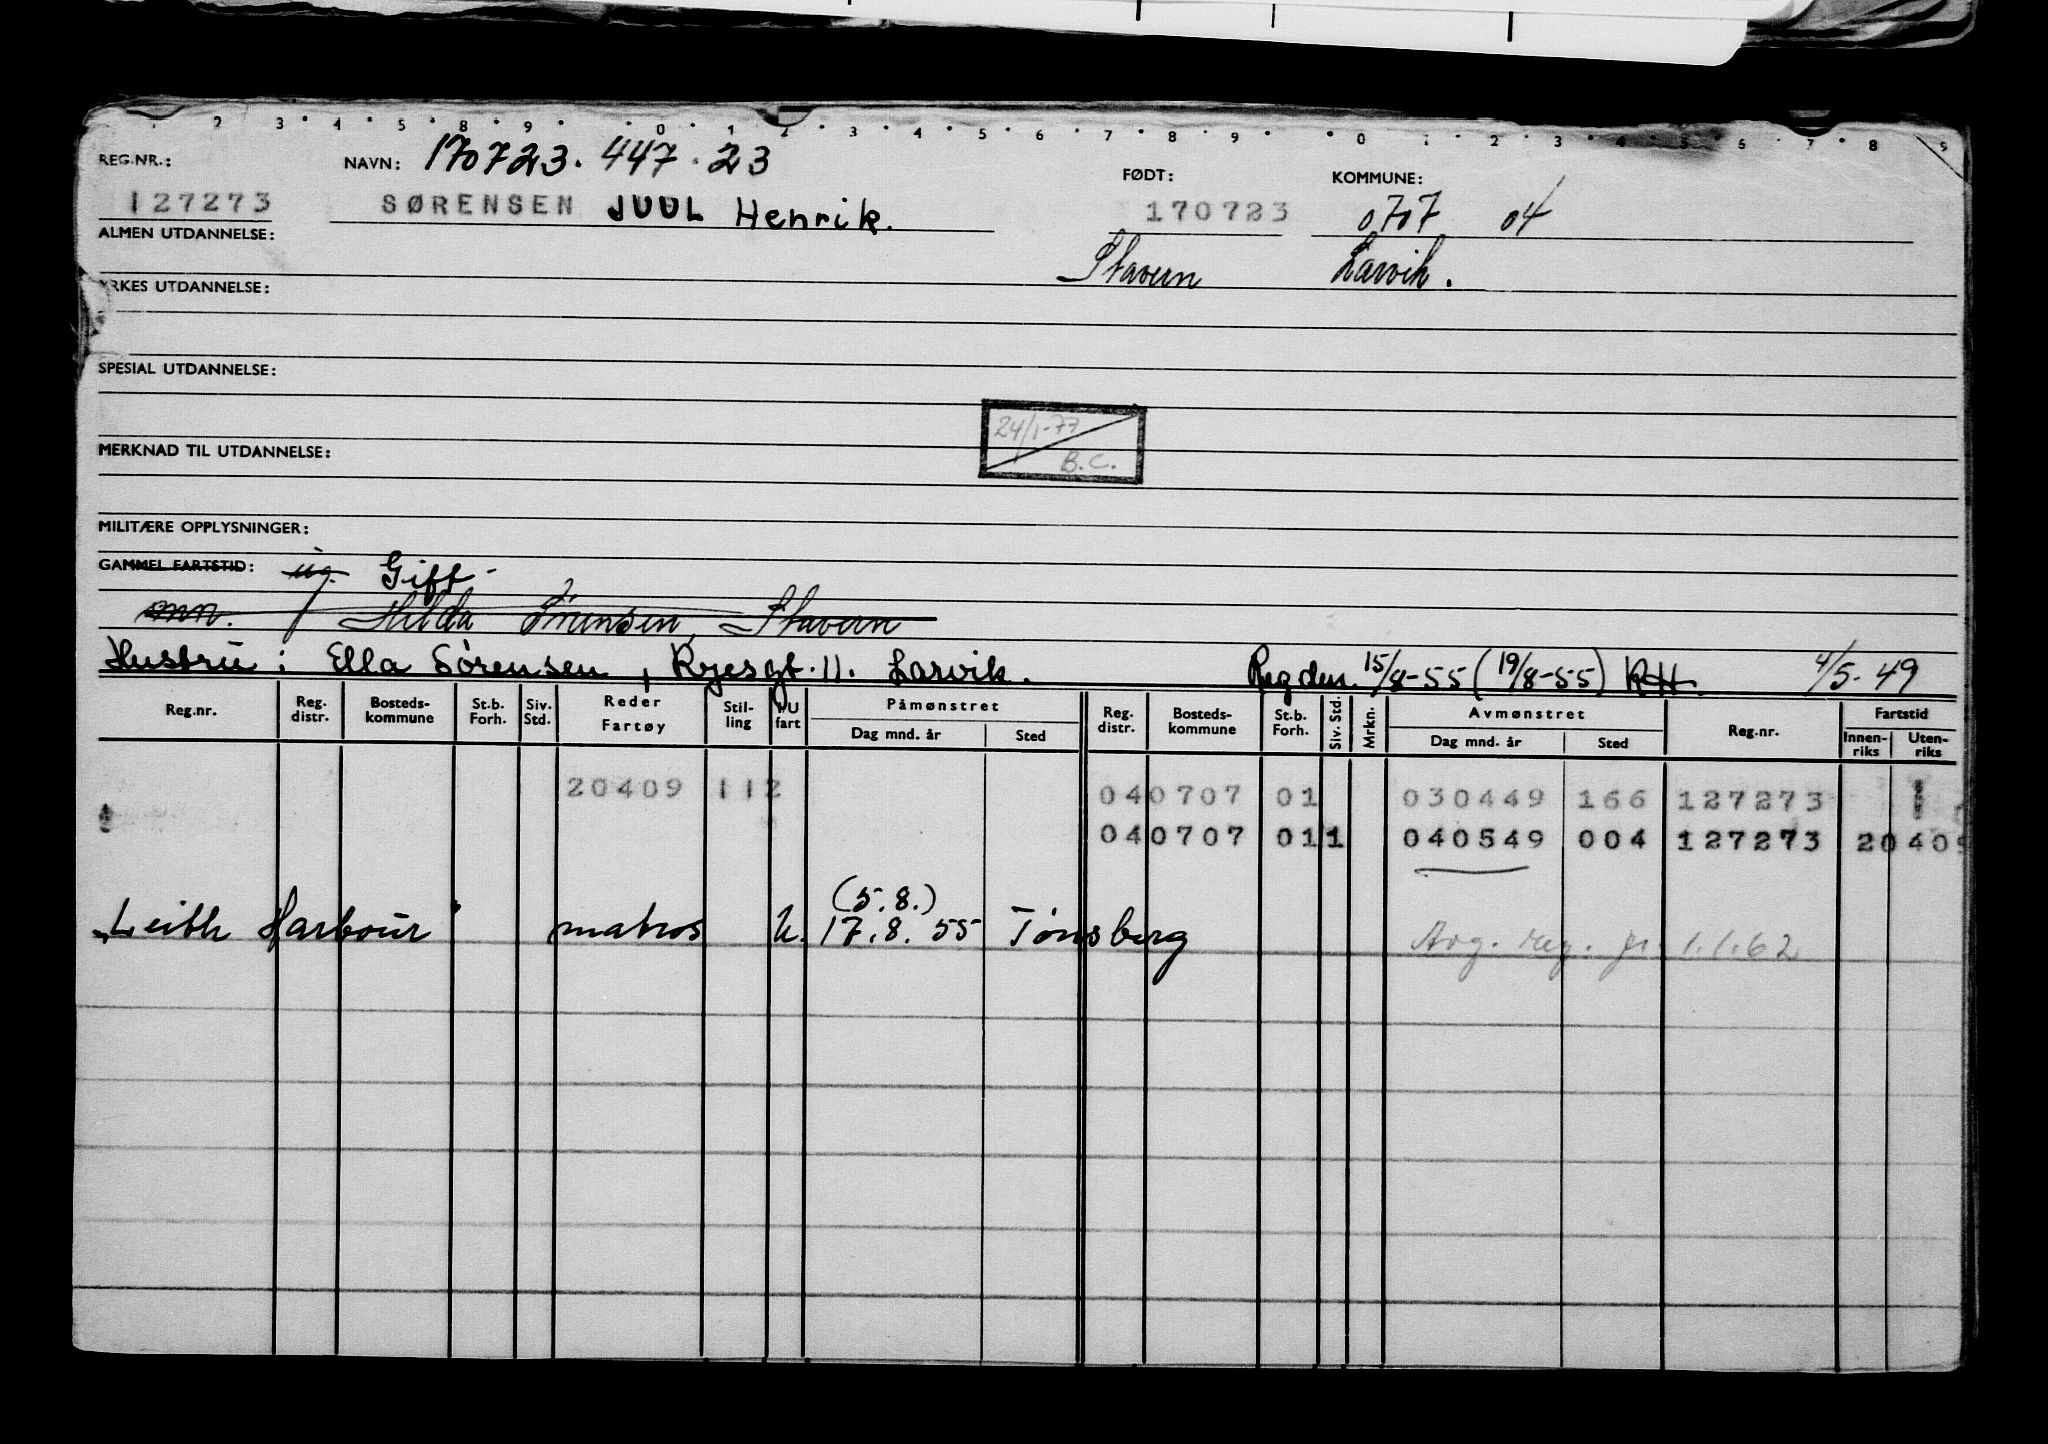 2 3 4 5 8 9 0 1 2 3 4 5 6 7 8 9 0 1 2 3 4 5 6 7 8 9
REG.NR.: NAVN: 170723. 447. 23 FØDT: KOMMUNE:
127273 SØRENSEN JUUL Henrik. 170723 0707 04
ALMEN UTDANNELSE: Stavern Larvik.
YRKES UTDANNELSE:
SPESIAL UTDANNELSE:
24/1-77
MERKNAD TIL UTDANNELSE: B.C.
MILITÆRE OPPLYSNINGER:
GAMMEL FARTSTID: ug. Gift
Hilda Sørensen, Stavern
Hustru: Ella Sørensen, Ryesgt. 11. Larvik. Reg den. 15/8-55 (19/8-55) RH. 4/5-49
Reg.nr. Reg. distr. Bosteds-kommune St.b. Forh. Siv. Std. Reder Fartøy Stil-ling I/U fart Påmønstret Dag mnd. år Sted Reg. distr. Bosteds-kommune St.b. Forh. Siv. Std. Mrkn. Avmønstret Dag mnd. år Sted Reg.nr. Fartstid Innen-riks Uten-riks
20409 112 040707 01 030449 166 127273
040707 011 040549 004 127273 20409
(5.8.)
"Leith Harbour" matros U. 17.8.55 Tønsberg Avg. reg. pr. 1.1.62